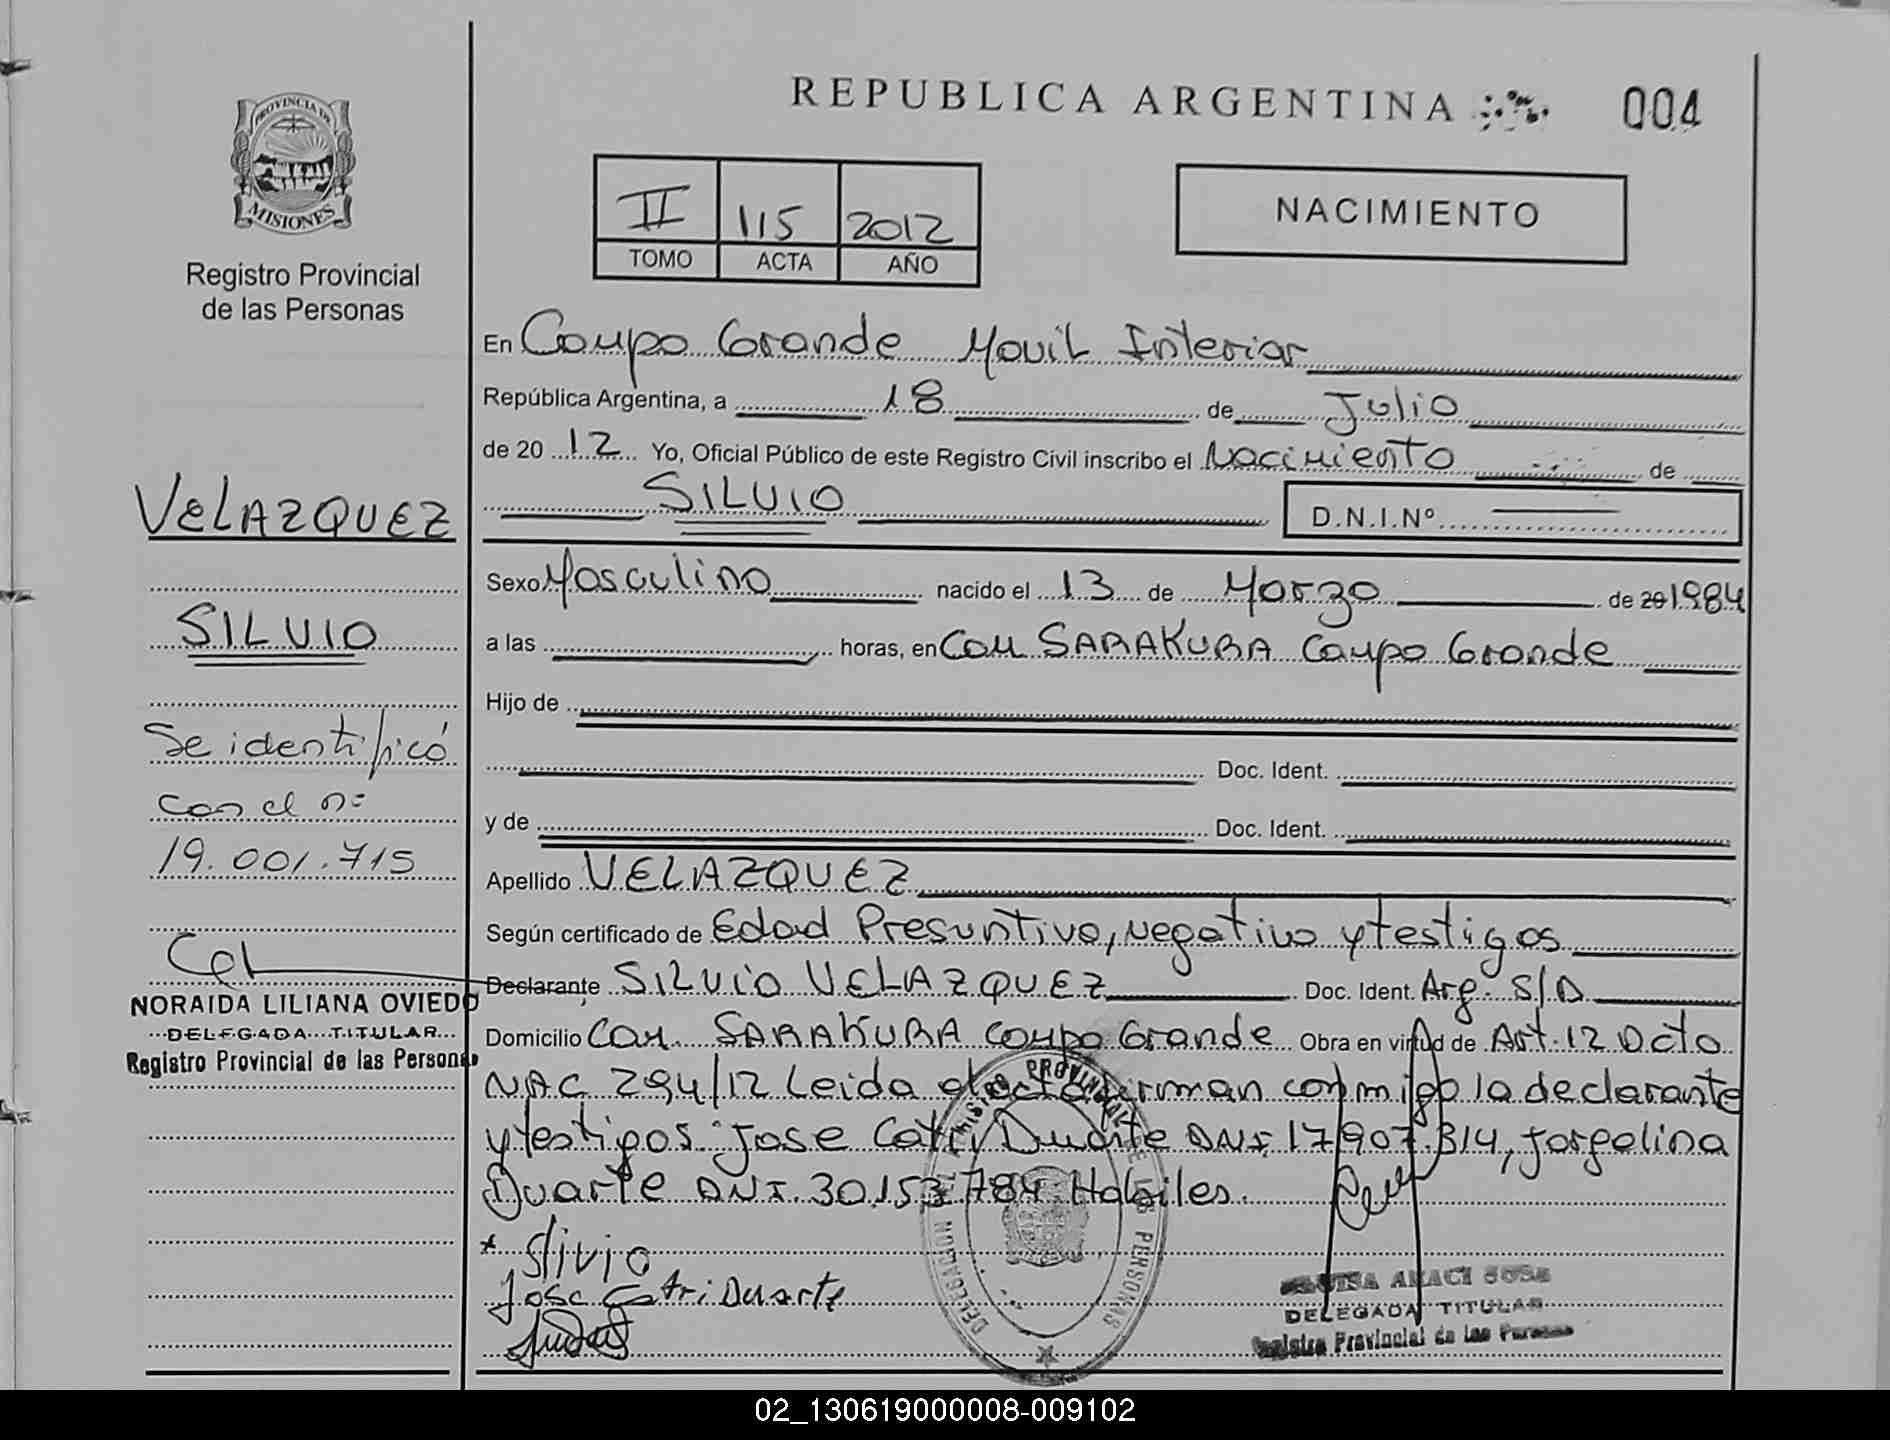 REPUBLICA ARGENTINA
004
PROVINCIA DE
MISIONES
Registro Provincial
de las Personas
II 115 2012
TOMO ACTA AÑO
NACIMIENTO
En Campo Grande Movil Interior
República Argentina, a 18 de Julio
de 20 12 Yo, Oficial Público de este Registro Civil inscribo el Nacimiento de
SILVIO
D.N.I.Nº
VELAZQUEZ
SILVIO
Se identificó
con el nº
19.001.715
NORAIDA LILIANA OVIEDO
DELEGADA TITULAR
Registro Provincial de las Personas
Sexo Masculino nacido el 13 de Marzo de 20 1984
a las horas, en Com SARAKURA Campo Grande
Hijo de
Doc. Ident.
y de Doc. Ident.
Apellido VELAZQUEZ
Según certificado de Edad Presuntiva, negativo y testigos
Declarante SILVIO VELAZQUEZ Doc. Ident. Arg. S/D
Domicilio Com. SARAKURA Campo Grande Obra en virtud de Art. 12 Dcto
NAC 294/12 Leida el acta firman conmigo la declarante
y testigos Jose Catri Duarte DNI 17.907.314, Jorgelina
Duarte DNI. 30.153.784 Habiles.
Silvio
Jose Catri Duarte
DELEGADA TITULAR
Registro Provincial de las Personas
REGISTRO PROVINCIAL DE LAS PERSONAS
02_130619000008-009102